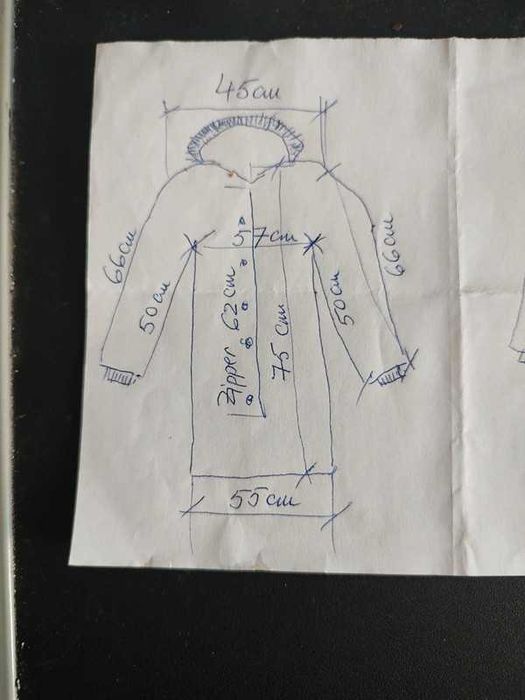 45cm
57cm
66cm
66cm
50cm
50cm
Zipper 62cm
75cm
55cm